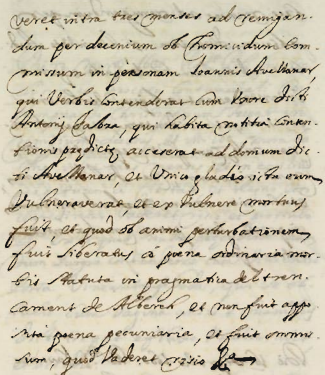 veret intra tres menses ad remigan-
dum per decenium ob homicidium com-
missum in personam Joannis Avellanar,
qui Verbis Contenderat cum Uxore dicti
Antonij Fabra, qui habita notitia Conten-
tionis predictę accesserat ad domum dic-
ti Avellanar, et Unico gladio ictu eum
Vulneraverat, et ex Vulnere mortuus
fuit et quod ob animi perturbationem
fuit liberatus a poena ordinaria mor-
tis Statuta in pragmatica del tren-
cament de Alberch, et non fuit appo
sita poena pecuniaria, et fuit omis-
sum, quod Vaderet